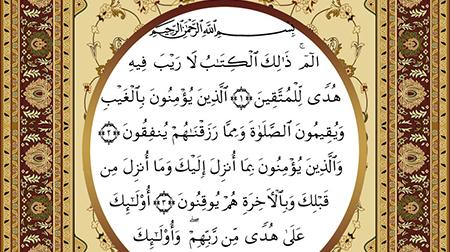 بِسْمِ ٱللَّهِ ٱلرَّحْمَٰنِ ٱلرَّحِيمِ
الٓمٓ ۚ ذَٰلِكَ ٱلْكِتَٰبُ لَا رَيْبَ فِيهِ
هُدًى لِّلْمُتَّقِينَ ﴿١﴾ ٱلَّذِينَ يُؤْمِنُونَ بِٱلْغَيْبِ
وَيُقِيمُونَ ٱلصَّلَوٰةَ وَمِمَّا رَزَقْنَٰهُمْ يُنفِقُونَ ﴿٢﴾
وَٱلَّذِينَ يُؤْمِنُونَ بِمَآ أُنزِلَ إِلَيْكَ وَمَآ أُنزِلَ مِن
قَبْلِكَ وَبِٱلْأَخِرَةِ هُمْ يُوقِنُونَ ﴿٣﴾ أُو۟لَٰٓئِكَ
عَلَىٰ هُدًى مِّن رَّبِّهِمْ ۖ وَأُو۟لَٰٓئِكَ